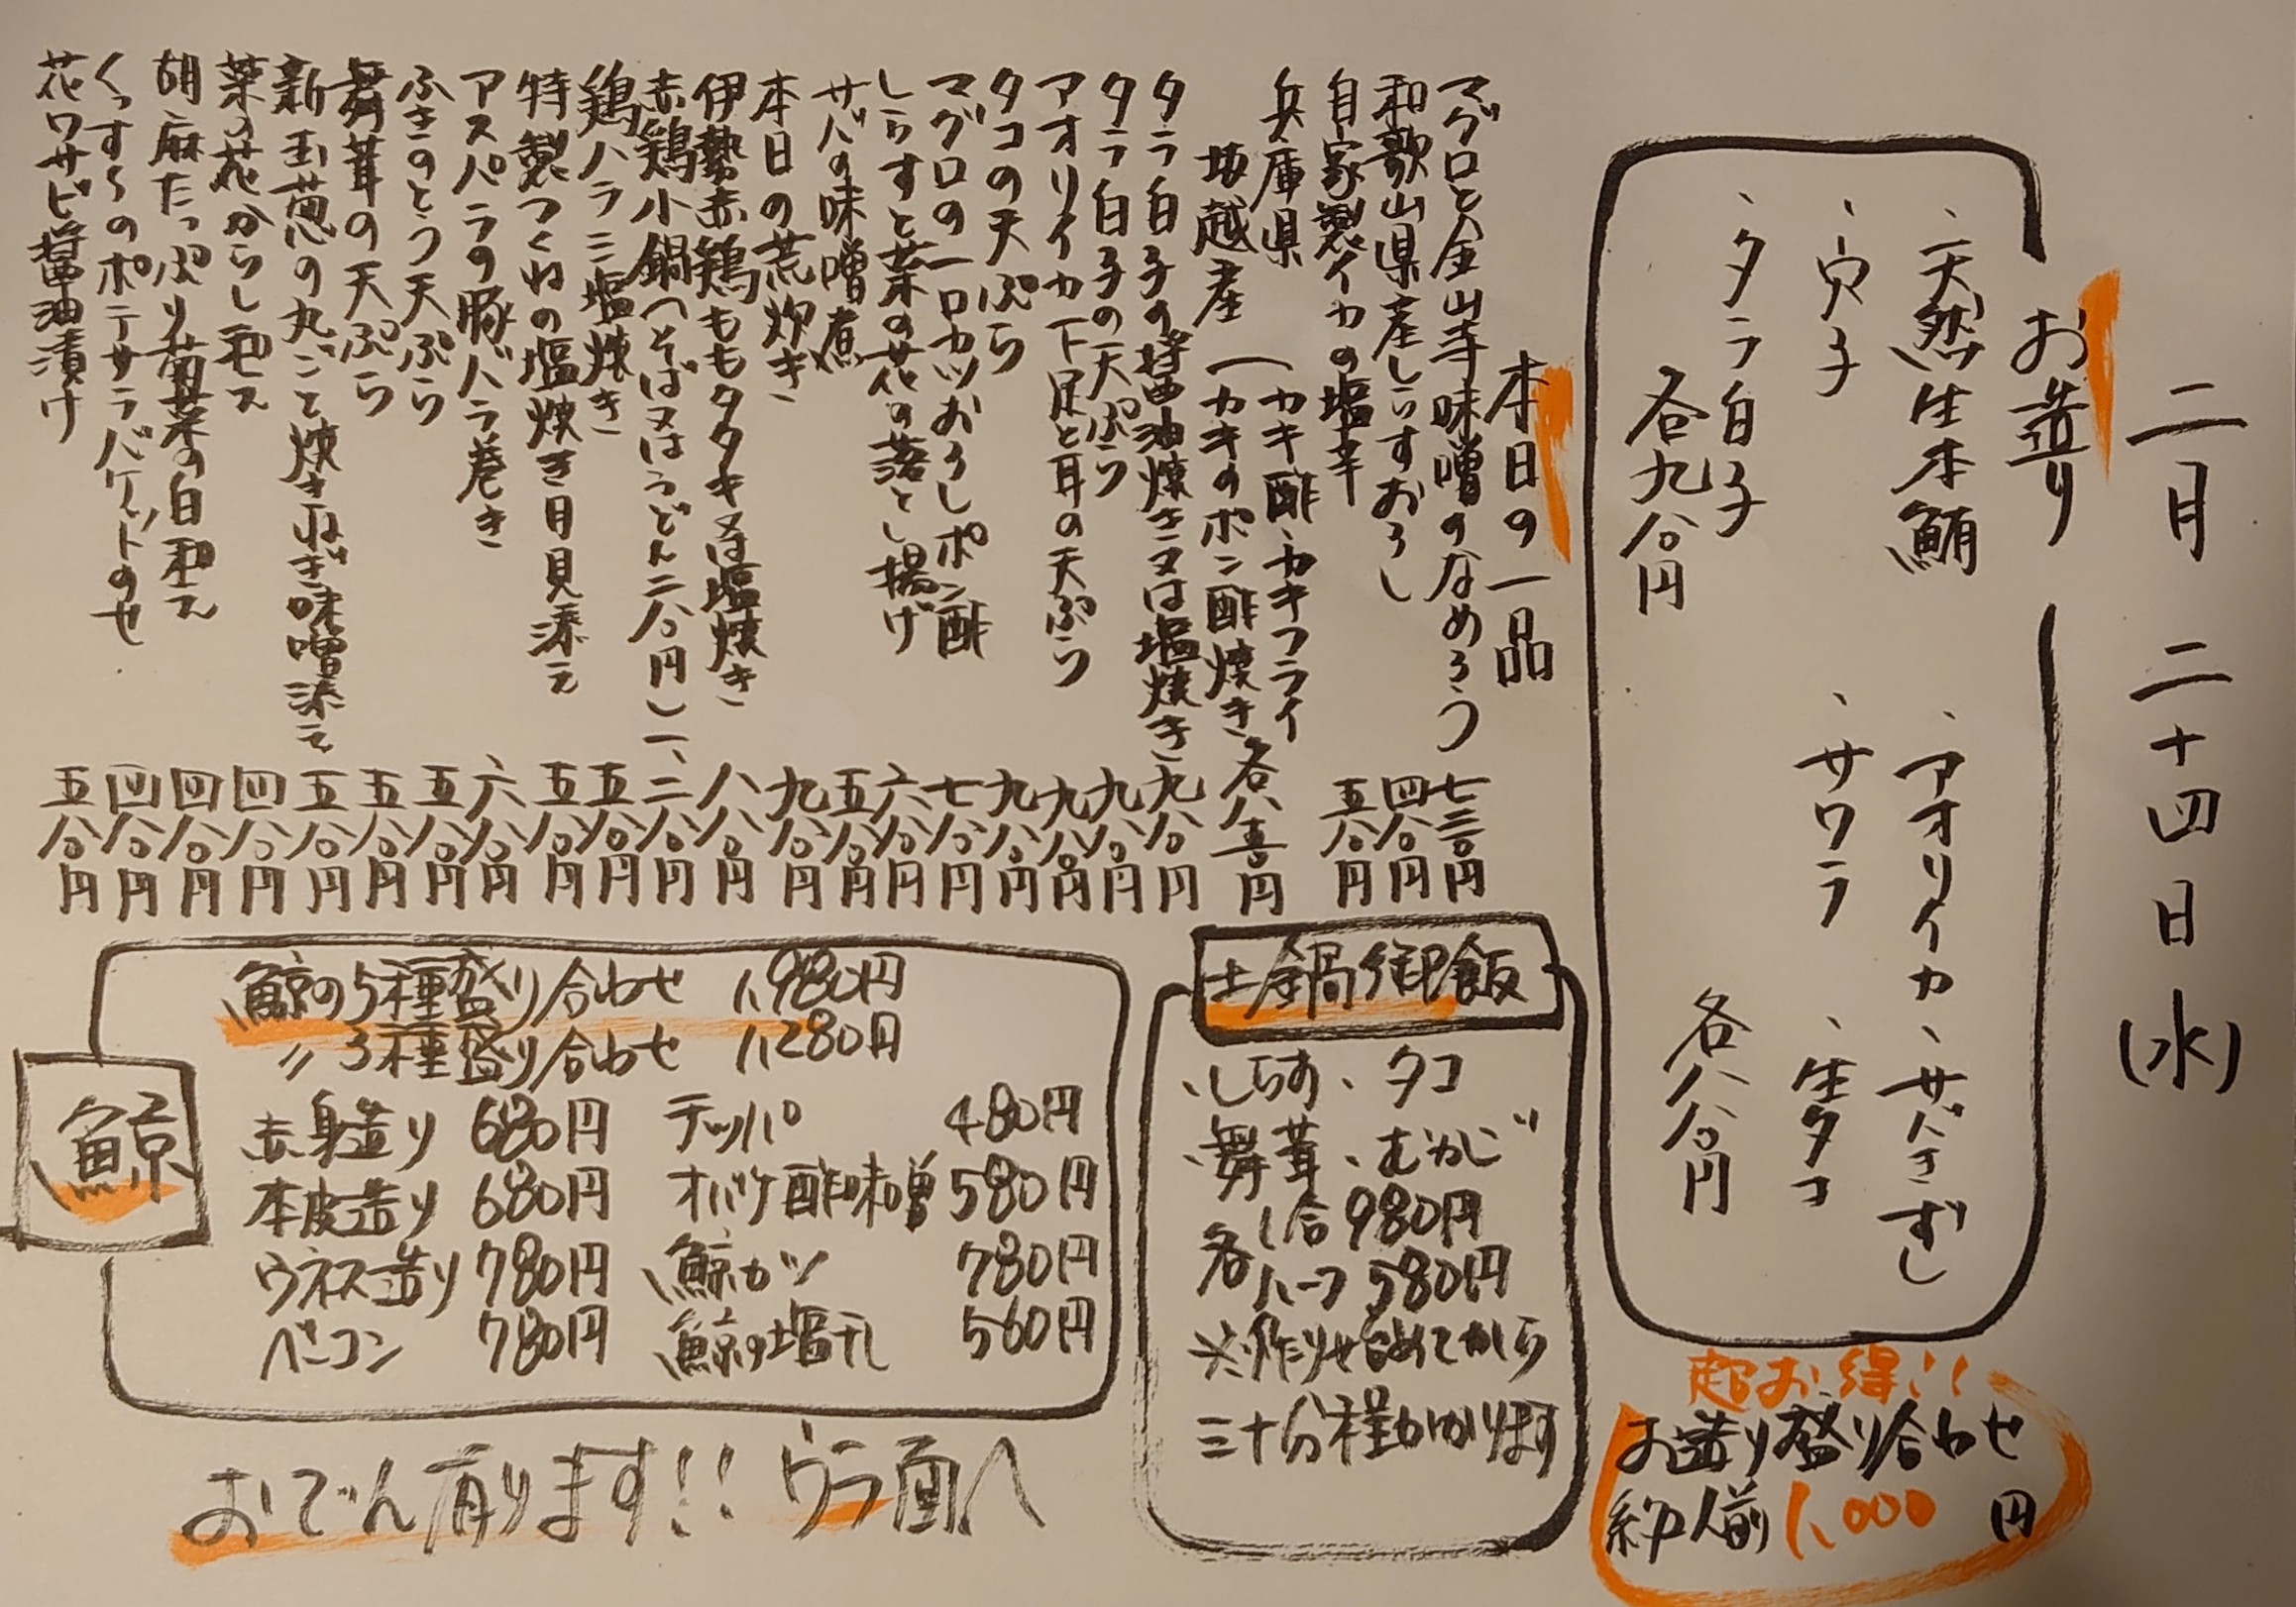 二月二十四日(水)
お造り
、天然生本鮪 、アオリイカ 、サバきずし
、穴子 、サワラ 、生タコ
、タラ白子
各九八〇円 各八八〇円
超お得!!
お造り盛り合わせ
約一人前1,000円
本日の一品
マグロと金山寺味噌のなめろう 七三〇円
和歌山県産しらすおろし 四八〇円
自家製イカの塩辛 五八〇円
兵庫県 坂越産 (カキ酢、カキフライ
(カキのポン酢焼き 各八五〇円
タラ白子の醤油焼き又は塩焼き 九八〇円
タラ白子の天ぷら 九八〇円
アオリイカ下足と耳の天ぷら 九八〇円
タコの天ぷら 九八〇円
マグロの一口カツおろしポン酢 七八〇円
しらすと菜の花の落とし揚げ 六八〇円
サバの味噌煮 五八〇円
本日の荒炊き 九八〇円
伊勢赤鶏ももタタキ又は塩焼き 八八〇円
赤鶏小鍋(そば又はうどん二八〇円) 一、二八〇円
鶏ハラミ塩焼き 五八〇円
特製つくねの塩焼き月見添え 五八〇円
アスパラの豚バラ巻き 六八〇円
ふきのとう天ぷら 五八〇円
舞茸の天ぷら 五八〇円
新玉葱の丸ごと焼きねぎ味噌添え 五八〇円
菜の花からし和え 四八〇円
胡麻たっぷり菊菜の白和え 四八〇円
くっすんのポテサラバケットのせ 四八〇円
花ワサビ醤油漬け 五八〇円
土鍋御飯
、しらす、タコ
、舞茸、むかご
各 1合980円
ハーフ580円
※作り始めてから
三十分程かかります
鯨
鯨の5種盛り合わせ 1,980円
〃 3種盛り合わせ 1,280円
赤身造り 680円 テッパ 480円
本皮造り 680円 オバケ酢味噌 580円
ウネス造り 780円 鯨カツ 780円
ベーコン 780円 鯨の塩干し 560円
おでん有ります!! ウラ面へ